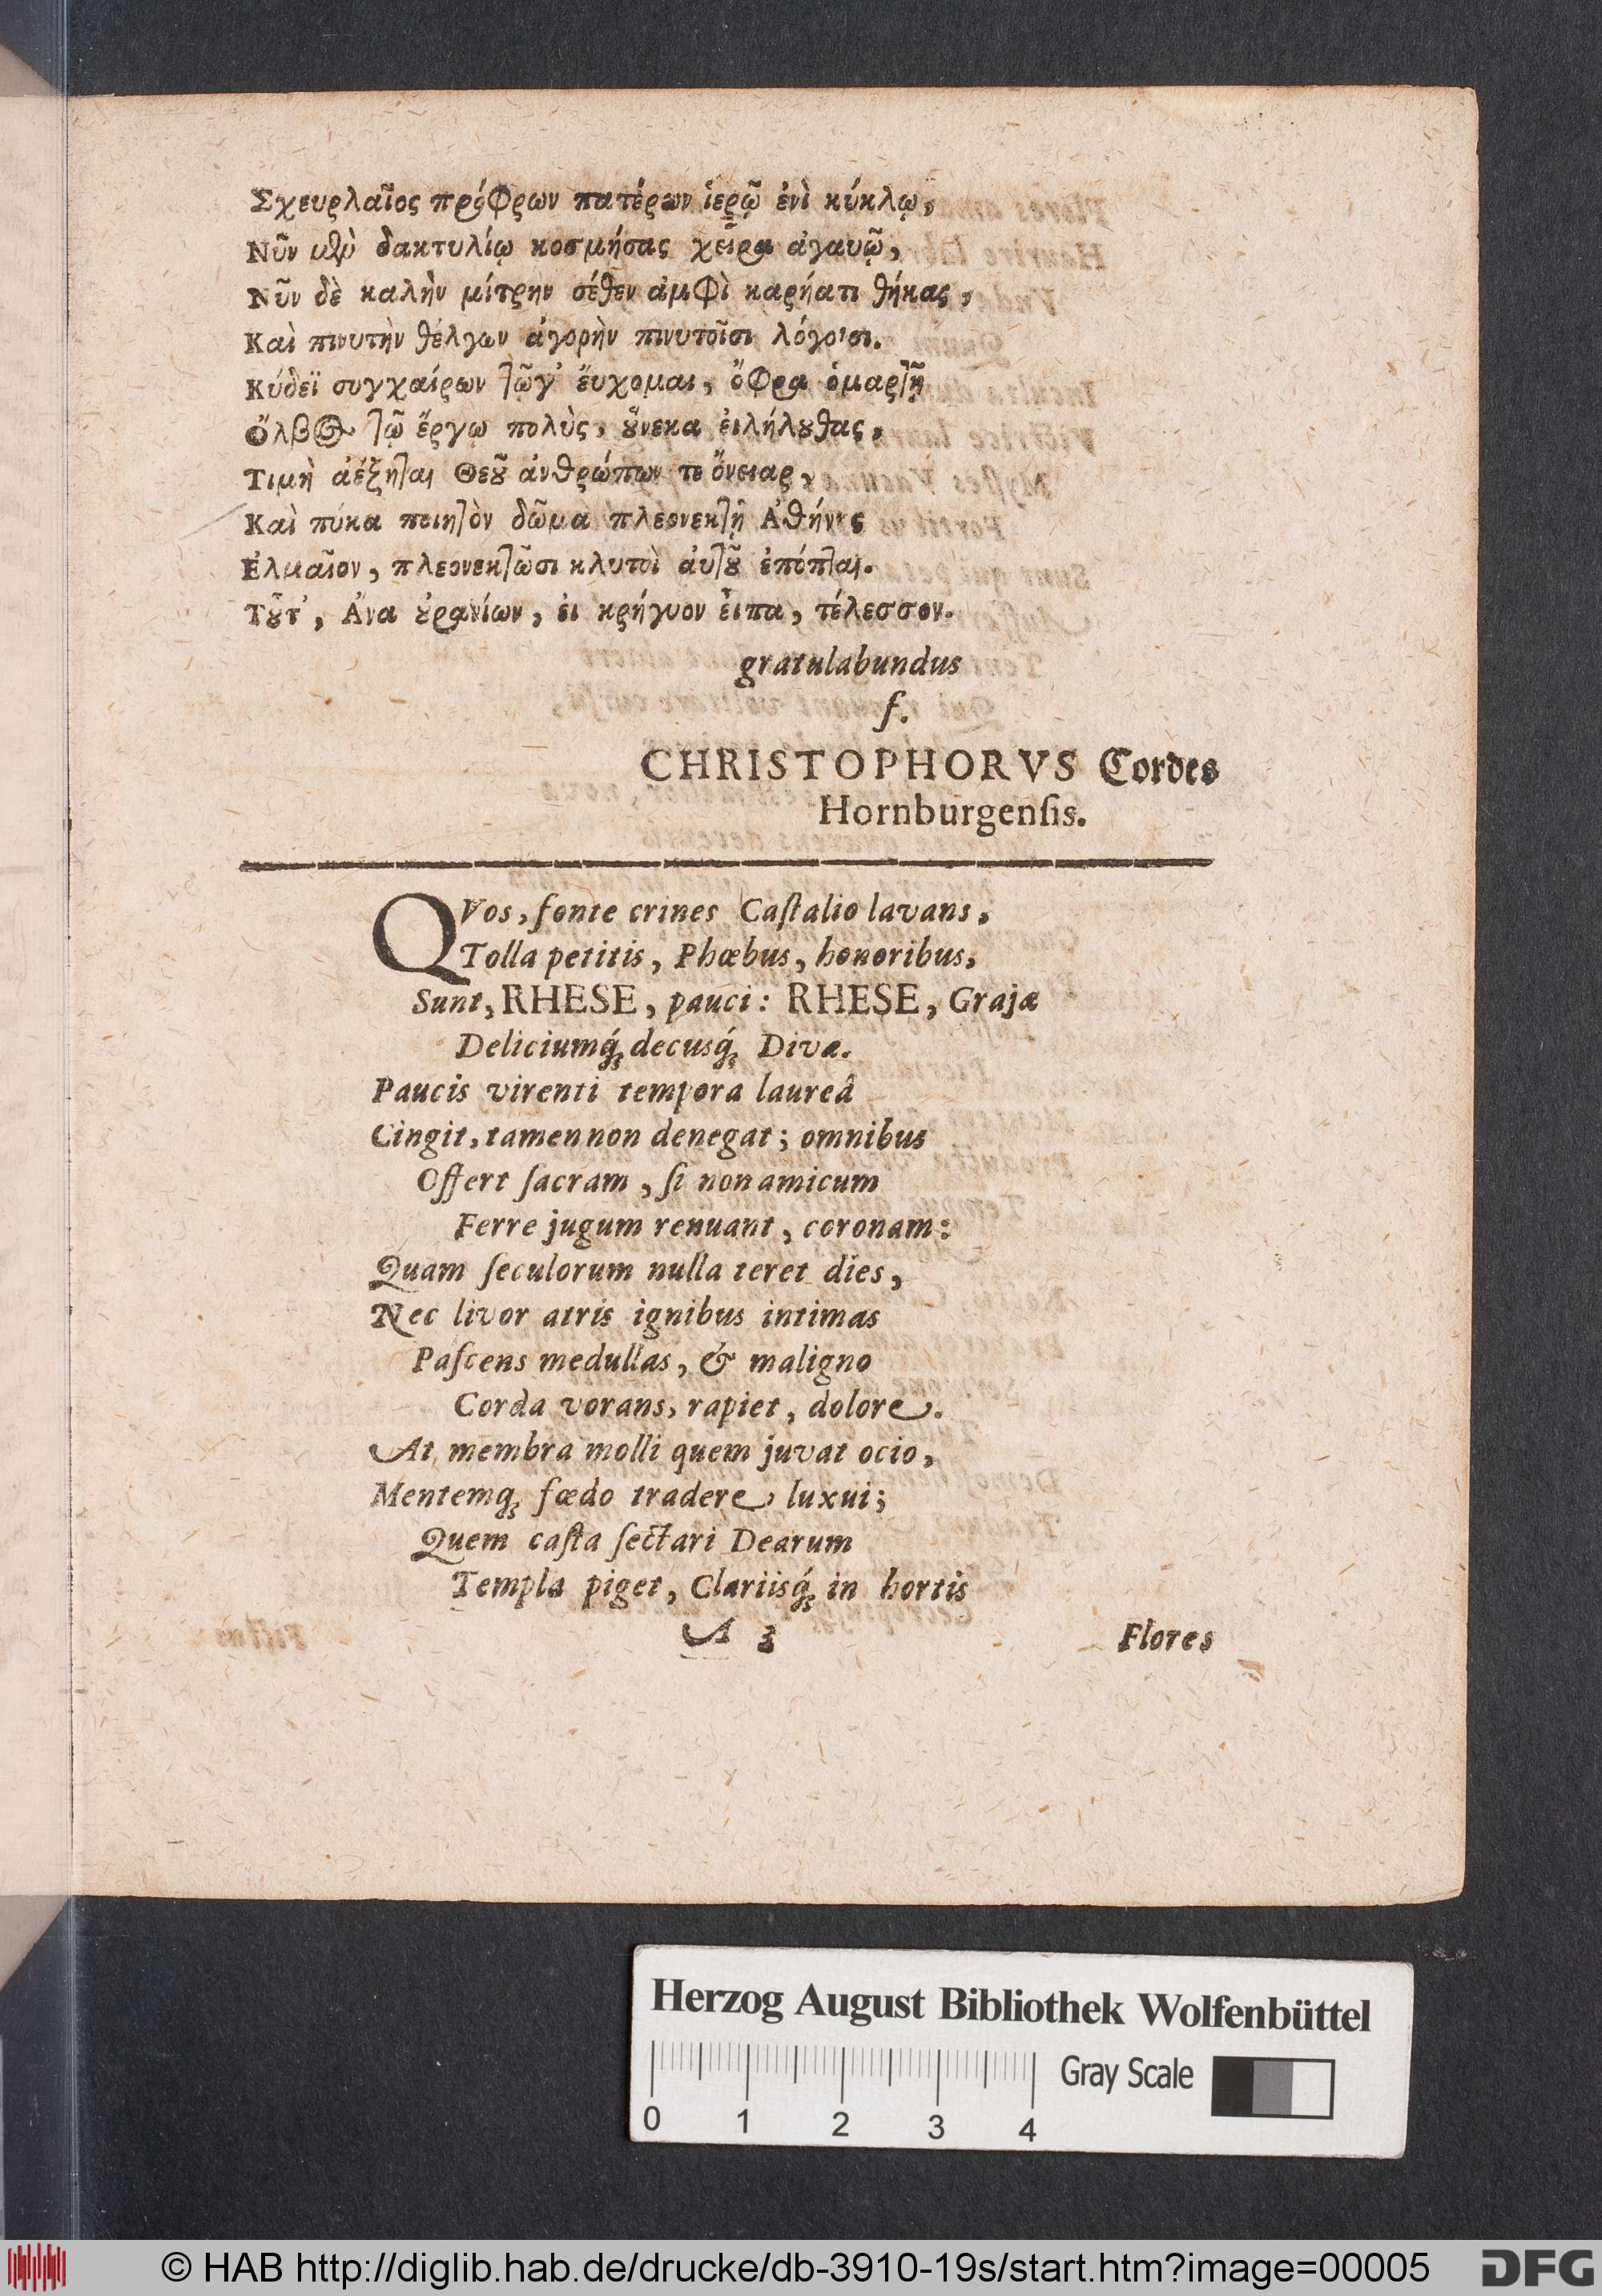 Σχευρλαῖος πρόφρων πατέρων ἱερῷ ἐνὶ κύκλῳ,
Νῦν μὲν δακτυλίῳ κοσμήσας χεῖρα ἀγαυῷ,
Νῦν δὲ καλὴν μίτρην σέθεν ἀμφὶ καρήατι θήκας,
Καὶ πινυτὴν θέλγων ἀγορὴν πινυτοῖσι λόγοισι.
Κύδεϊ συγχαίρων τῷγ' ἔυχομαι, ὄφρα ὁμαρτῆ
Ὄλβος τῷ ἔργῳ πολὺς, ȣ̔́νεκα ἐιλήλȣθας,
Τιμὴ ἀέξηται Θεȣ͂ ἀνθρώπων τε ὄνειαρ,
Καὶ πύκα ποιητὸν δῶμα πλεονεκτῇ Ἀθήνης
Ἐλμαῖον, πλεονεκτῶσι κλυτοὶ ἀυτȣ͂ ἐπόπται.
Τȣ͂τ', Ἄνα ȣ̓ρανίων, ἐι κρήγυον εἶπα, τέλεσσον.
gratulabundus
f.
CHRISTOPHORVS Cordes
Hornburgenſis.
QVos, fonte crines Caſtalio lavans,
Tolla petitis, Phœbus, honoribus,
Sunt, RHESE, pauci: RHESE, Grajæ
Deliciumq́; decusq́; Divæ.
Paucis virenti tempora laureâ
Cingit, tamen non denegat; omnibus
Offert ſacram, ſi non amicum
Ferre jugum renuant, coronam:
Quam ſeculorum nulla teret dies,
Nec livor atris ignibus intimas
Paſcens medullas, & maligno
Corda vorans, rapiet, dolore.
At membra molli quem juvat ocio,
Mentemq; fœdo tradere luxui;
Quem caſta ſectari Dearum
Templa piget, Clariisq́; in hortis
A 3 Flores
Herzog August Bibliothek Wolfenbüttel
Gray Scale
0 1 2 3 4
© HAB http://diglib.hab.de/drucke/db-3910-19s/start.htm?image=00005 DFG